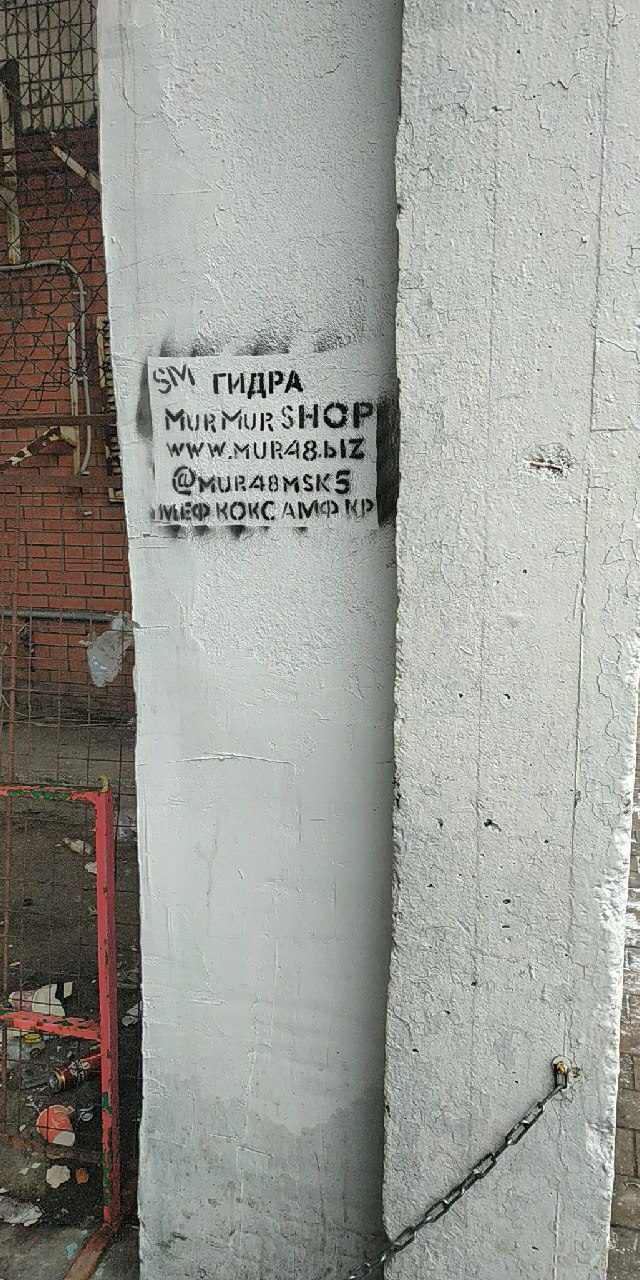 SM ГИДРА
MUR MUR SHOP
WWW.MUR48.bIZ
@MUR48MSK5
МЕФ КОКС АМФ КР